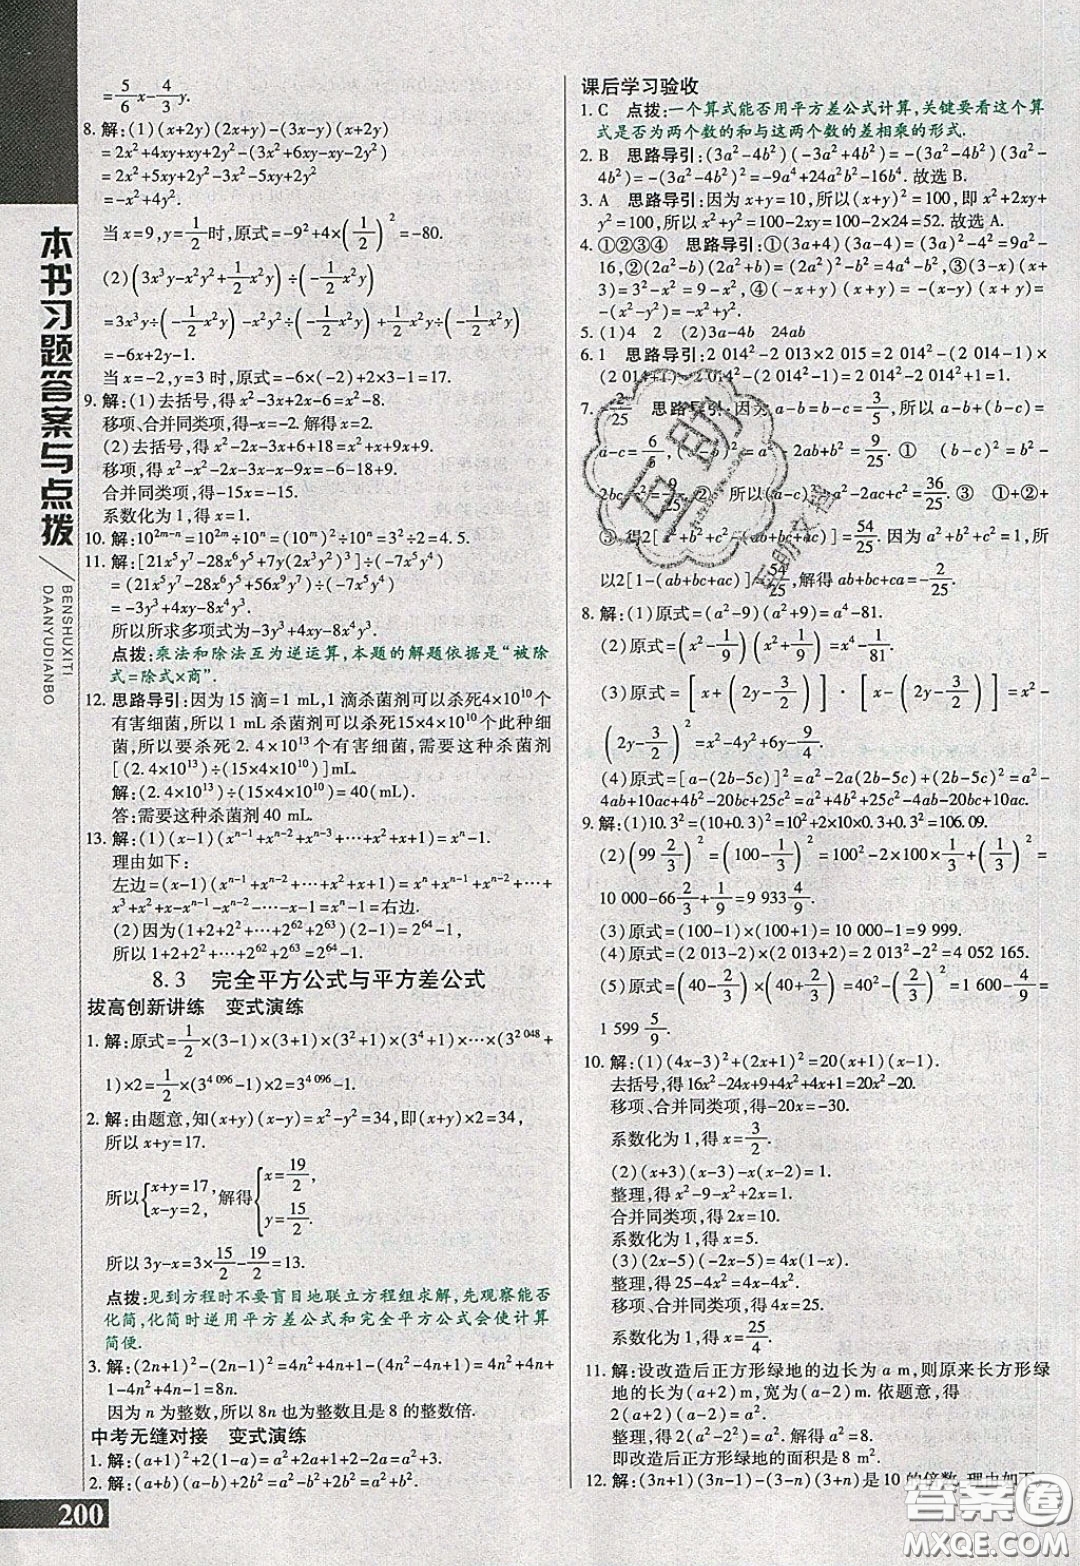 =5/6x-4/3y.
8. 解:(1)(x+2y)(2x+y)-(3x-y)(x+2y)
=2x²+4xy+xy+2y²-(3x²+6xy-xy-2y²)
=2x²+5xy+2y²-3x²-5xy+2y²
=-x²+4y².
当x=9,y=1/2时,原式=-9²+4×(1/2)²=-80.
(2)(3x³y-x²y²+1/2x²y)÷(-1/2x²y)
=3x³y÷(-1/2x²y)-x²y²÷(-1/2x²y)+1/2x²y÷(-1/2x²y)
=-6x+2y-1.
当x=-2,y=3时,原式=-6×(-2)+2×3-1=17.
9. 解:(1)去括号,得x²-3x+2x-6=x²-8.
移项、合并同类项,得-x=-2. 解得x=2.
(2)去括号,得x²-2x-3x+6+18=x²+x+9x+9.
移项,得x²-x²-2x-3x-x-9x=9-6-18+9.
合并同类项,得-15x=-15.
系数化为1,得x=1.
10. 解:10²ᵐ⁻ⁿ=10²ᵐ÷10ⁿ=(10ᵐ)²÷10ⁿ=3²÷2=4.5.
11. 解:[21x⁵y⁷-28x⁶y⁵+7y(2x³y²)³]÷(-7x⁵y⁴)
=(21x⁵y⁷-28x⁶y⁵+56x⁹y⁷)÷(-7x⁵y⁴)
=-3y³+4xy-8x⁴y³.
所以所求多项式为-3y³+4xy-8x⁴y³.
点拨:乘法和除法互为逆运算,本题的解题依据是“被除
式=除式×商”.
12. 思路导引:因为15滴=1 mL,1滴杀菌剂可以杀死4×10¹⁰个
有害细菌,所以1 mL杀菌剂可以杀死15×4×10¹⁰个此种细
菌,所以要杀死2.4×10¹³个有害细菌,需要这种杀菌剂
[(2.4×10¹³)÷(15×4×10¹⁰)]mL.
解:(2.4×10¹³)÷(15×4×10¹⁰)=40(mL).
答:需要这种杀菌剂40 mL.
13. 解:(1)(x-1)(xⁿ⁻¹+xⁿ⁻²+xⁿ⁻³+…+x²+x+1)=xⁿ-1.
理由如下:
左边=(x-1)(xⁿ⁻¹+xⁿ⁻²+…+x²+x+1)=xⁿ+xⁿ⁻¹+xⁿ⁻²+…+
x³+x²+x-xⁿ⁻¹-xⁿ⁻²-…-x²-x-1=xⁿ-1=右边.
(2)因为(1+2+2²+…+2⁶²+2⁶³)(2-1)=2⁶⁴-1,
所以1+2+2²+…+2⁶²+2⁶³=2⁶⁴-1.
8.3 完全平方公式与平方差公式
拔高创新讲练 变式演练
1. 解:原式=1/2×(3-1)×(3+1)×(3²+1)×(3⁴+1)×…×(3²⁰⁴⁸+
1)×2=1/2×(3⁴⁰⁹⁶-1)×2=3⁴⁰⁹⁶-1.
2. 解:由题意,知(x+y)(x-y)=x²-y²=34,即(x+y)×2=34,
所以x+y=17.
所以{x+y=17, x-y=2, 解得{x=19/2, y=15/2.
所以3y-x=3×15/2-19/2=13.
点拨:见到方程时不要盲目地联立方程组求解,先观察能否
化简,化简时逆用平方差公式和完全平方公式会使计算
简便.
3. 解:(2n+1)²-(2n-1)²=4n²+4n+1-(4n²-4n+1)=4n²+4n+
1-4n²+4n-1=8n.
因为n为整数,所以8n也为整数且是8的整数倍.
中考无缝对接 变式演练
1. 解:(a+1)²+2(1-a)=a²+2a+1+2-2a=a²+3.
2. 解:(a+b)(a-b)+2b²=a²-b²+2b²=a²+b².
课后学习验收
1. C 点拨:一个算式能否用平方差公式计算,关键要看这个算
式是否为两个数的和与这两个数的差相乘的形式.
2. B 思路导引:(3a²-4b²)(-3a²+4b²)=-(3a²-4b²)(3a²-
4b²)=-(3a²-4b²)²=-9a⁴+24a²b²-16b⁴. 故选B.
3. A 思路导引:因为x+y=10,所以(x+y)²=100,即x²+2xy+
y²=100,所以x²+y²=100-2xy=100-2×24=52. 故选A.
4. ①②③④ 思路导引:①(3a+4)(3a-4)=(3a)²-4²=9a²-
16,②(2a²-b)(2a²+b)=(2a²)²-b²=4a⁴-b²,③(3-x)(x+
3)=3²-x²=9-x²,④(-x+y)(x+y)=-(x-y)(x+y)=
-(x²-y²)=-x²+y².
5. (1)4 2 (2)3a-4b 24ab
6. 1 思路导引:2 014²-2 013×2 015=2 014²-(2 014-1)×
(2 014+1)=2 014²-(2 014²-1)=2 014²-2 014²+1=1.
7. -2/25 思路导引:因为a-b=b-c=3/5,所以a-b+(b-c)=
a-c=6/5,(a-b)²=a²-2ab+b²=9/25. ① (b-c)²=b²-
2bc+c²=9/25. ② 所以(a-c)²=a²-2ac+c²=36/25. ③ ①+②+
③得2(a²+b²+c²)-2(ab+bc+ac)=54/25. 因为a²+b²+c²=1,所
以2[1-(ab+bc+ac)]=54/25,解得ab+bc+ca=-2/25.
8. 解:(1)原式=(a²-9)(a²+9)=a⁴-81.
(2)原式=(x²-1/9)(x²+1/9)=x⁴-1/81.
(3)原式=[x+(2y-3/2)]·[x-(2y-3/2)]=x²-
(2y-3/2)²=x²-4y²+6y-9/4.
(4)原式=[a-(2b-5c)]²=a²-2a(2b-5c)+(2b-5c)²=a²-
4ab+10ac+4b²-20bc+25c²=a²+4b²+25c²-4ab-20bc+10ac.
9. 解:(1)10.3²=(10+0.3)²=10²+2×10×0.3+0.3²=106.09.
(2)(99 2/3)²=(100-1/3)²=100²-2×100×1/3+(1/3)²=
10 000-66 2/3+1/9=9 933 4/9.
(3)原式=(100-1)×(100+1)=10 000-1=9 999.
(4)原式=(2 013-2)×(2 013+2)=2 013²-4=4 052 165.
(5)原式=(40-2/3)×(40+2/3)=40²-(2/3)²=1 600-4/9=
1 599 5/9.
10. 解:(1)(4x-3)²+(2x+1)²=20(x+1)(x-1).
去括号,得16x²-24x+9+4x²+4x+1=20x²-20.
移项、合并同类项,得-20x=-30.
系数化为1,得x=3/2.
(2)(x+3)(x-3)-x(x-2)=1.
整理,得x²-9-x²+2x=1.
合并同类项,得2x=10.
系数化为1,得x=5.
(3)(2x-5)(-2x-5)=4x-4x².
整理,得25-4x²=4x-4x².
移项、合并同类项,得4x=25.
系数化为1,得x=25/4.
11. 解:设改造后正方形绿地的边长为a m,则原来长方形绿
地的长为(a+2)m,宽为(a-2)m. 依题意,得
2(a+2)(a-2)=a². 2(a²-2²)=a². a²=8.
即改造后正方形绿地的面积是8 m².
12. 解:(3n+1)(3n-1)-(3-n)(3+n)是10的倍数. 理由如下:
本书习题答案与点拨
BENSHUXITI
DAANYUDIANBO
200
互助
互助文营
答案圈
MXQE.COM